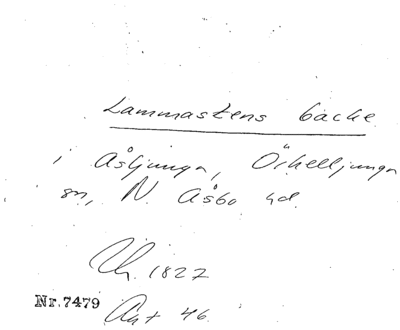 Lammastens backe
i Åsljunga, Örkelljunga
sn, N. Åsbo hd.
Uh. 1827
Nr. 7479
Ant 46.